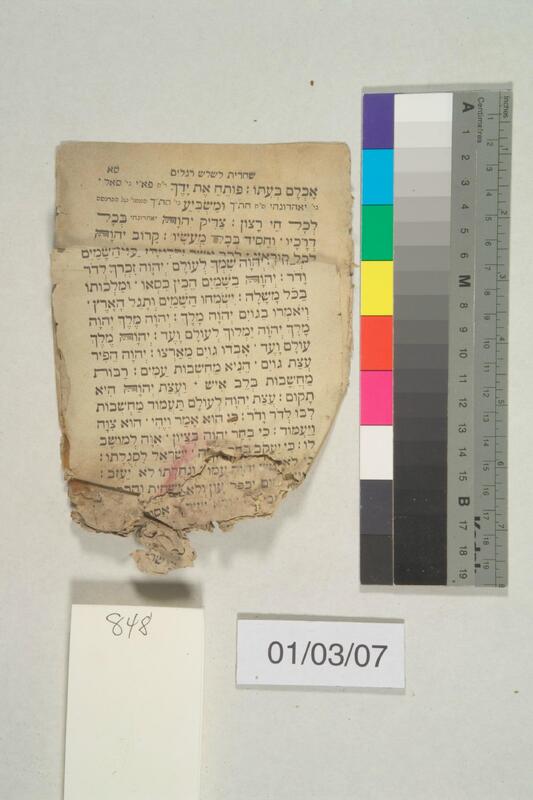 שחרית לשלש רגלים
סא
אכלם בעתו: פותח את ידך
ומשביע
לכל חי רצון: צדיק יהוה בכל
דרכיו וחסיד בכל מעשיו: קרוב יהוה
יהוה שמך לעולם יהוה זכרך לדר
ודר: יהוה בשמים הכין כסאו ומלכותו
בכל משלה: ישמחו השמים ותגל הארץ
ויאמרו בגוים יהוה מלך: יהוה מלך יהוה
מלך יהוה ימלוך לעולם ועד: יהוה מלך
עולם ועד אבדו גוים מארצו: יהוה הפיר
עצת גוים הניא מחשבות עמים: רבות
מחשבות בלב איש ועצת יהוה היא
תקום: עצת יהוה לעולם תעמוד מחשבות
לבו לדר ודר: כי הוא אמר ויהי הוא צוה
ויעמוד: כי בחר יהוה בציון אוה למושב
לו: כי יעקב ישראל לסגלתו:
יהוה עמו ונחלתו לא יעזב:
יכפר עון ולא ישחית
848
01/03/07
Centimetres
Inches
A 1 2 3 4 5 6 M 8 9 10 11 12 13 14 15 B 17 18 19